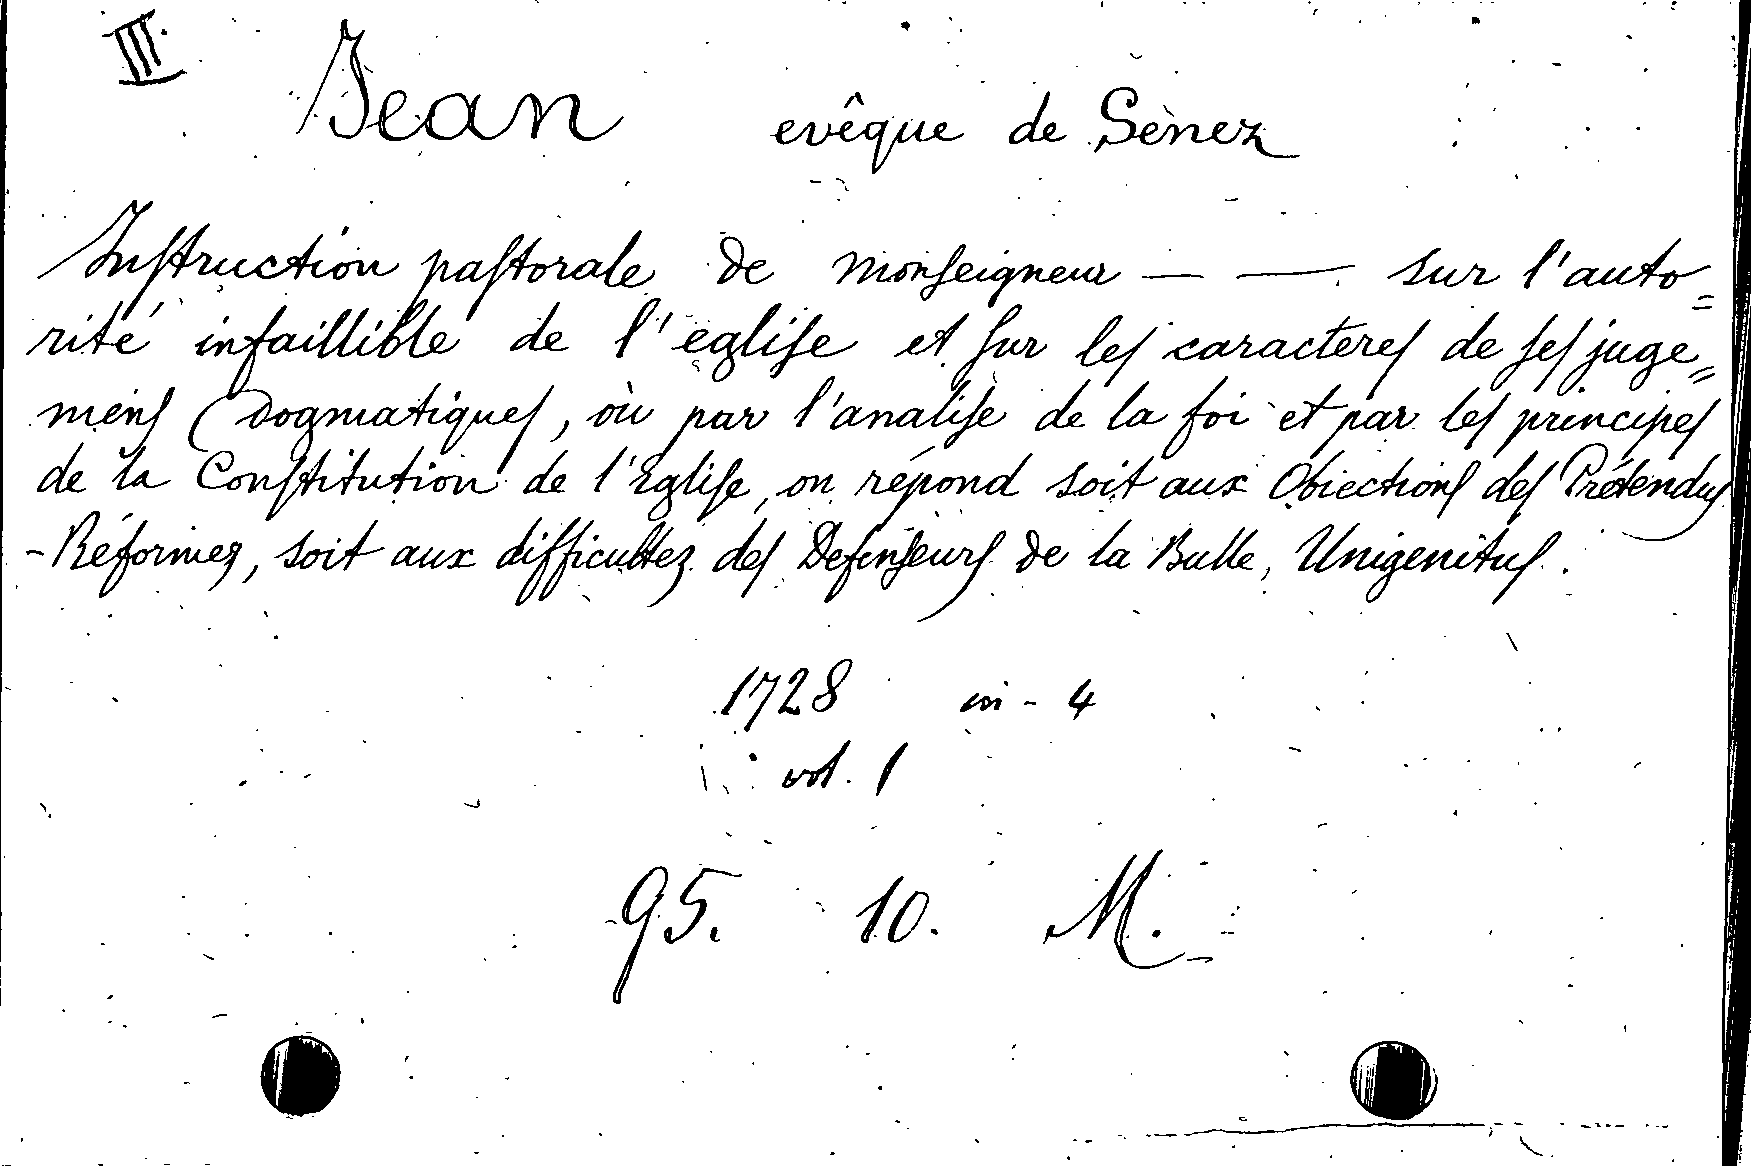 III.
Jean evêque de Sènez
Inſtruction paſtorale de monſeigneur — — sur l'auto=
rité infaillible de l'egliſe et ſur leſ caractereſ de ſeſ juge=
menſ dogmatiqueſ, où par l'analiſe de la foi et par leſ principeſ
de la Conſtitution de l'Egliſe, on répond soit aux Obiectionſ deſ Prétenduſ
-Réformez, soit aux difficultez deſ Defenſeurſ de la Bulle, Unigenituſ.
1728 in-4
vol. 1
95. 10. M.